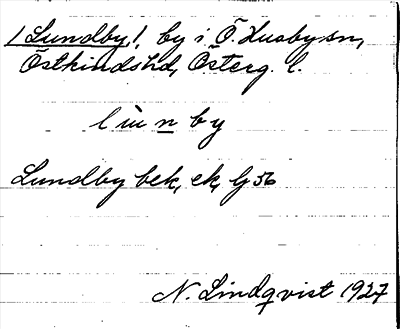 /Lundby,!, by i Ö. Husby sn,
Östkinds hd, Österg. l.
lùnby
Lundby bek, ek, Gj 56
N. Lindqvist 1927